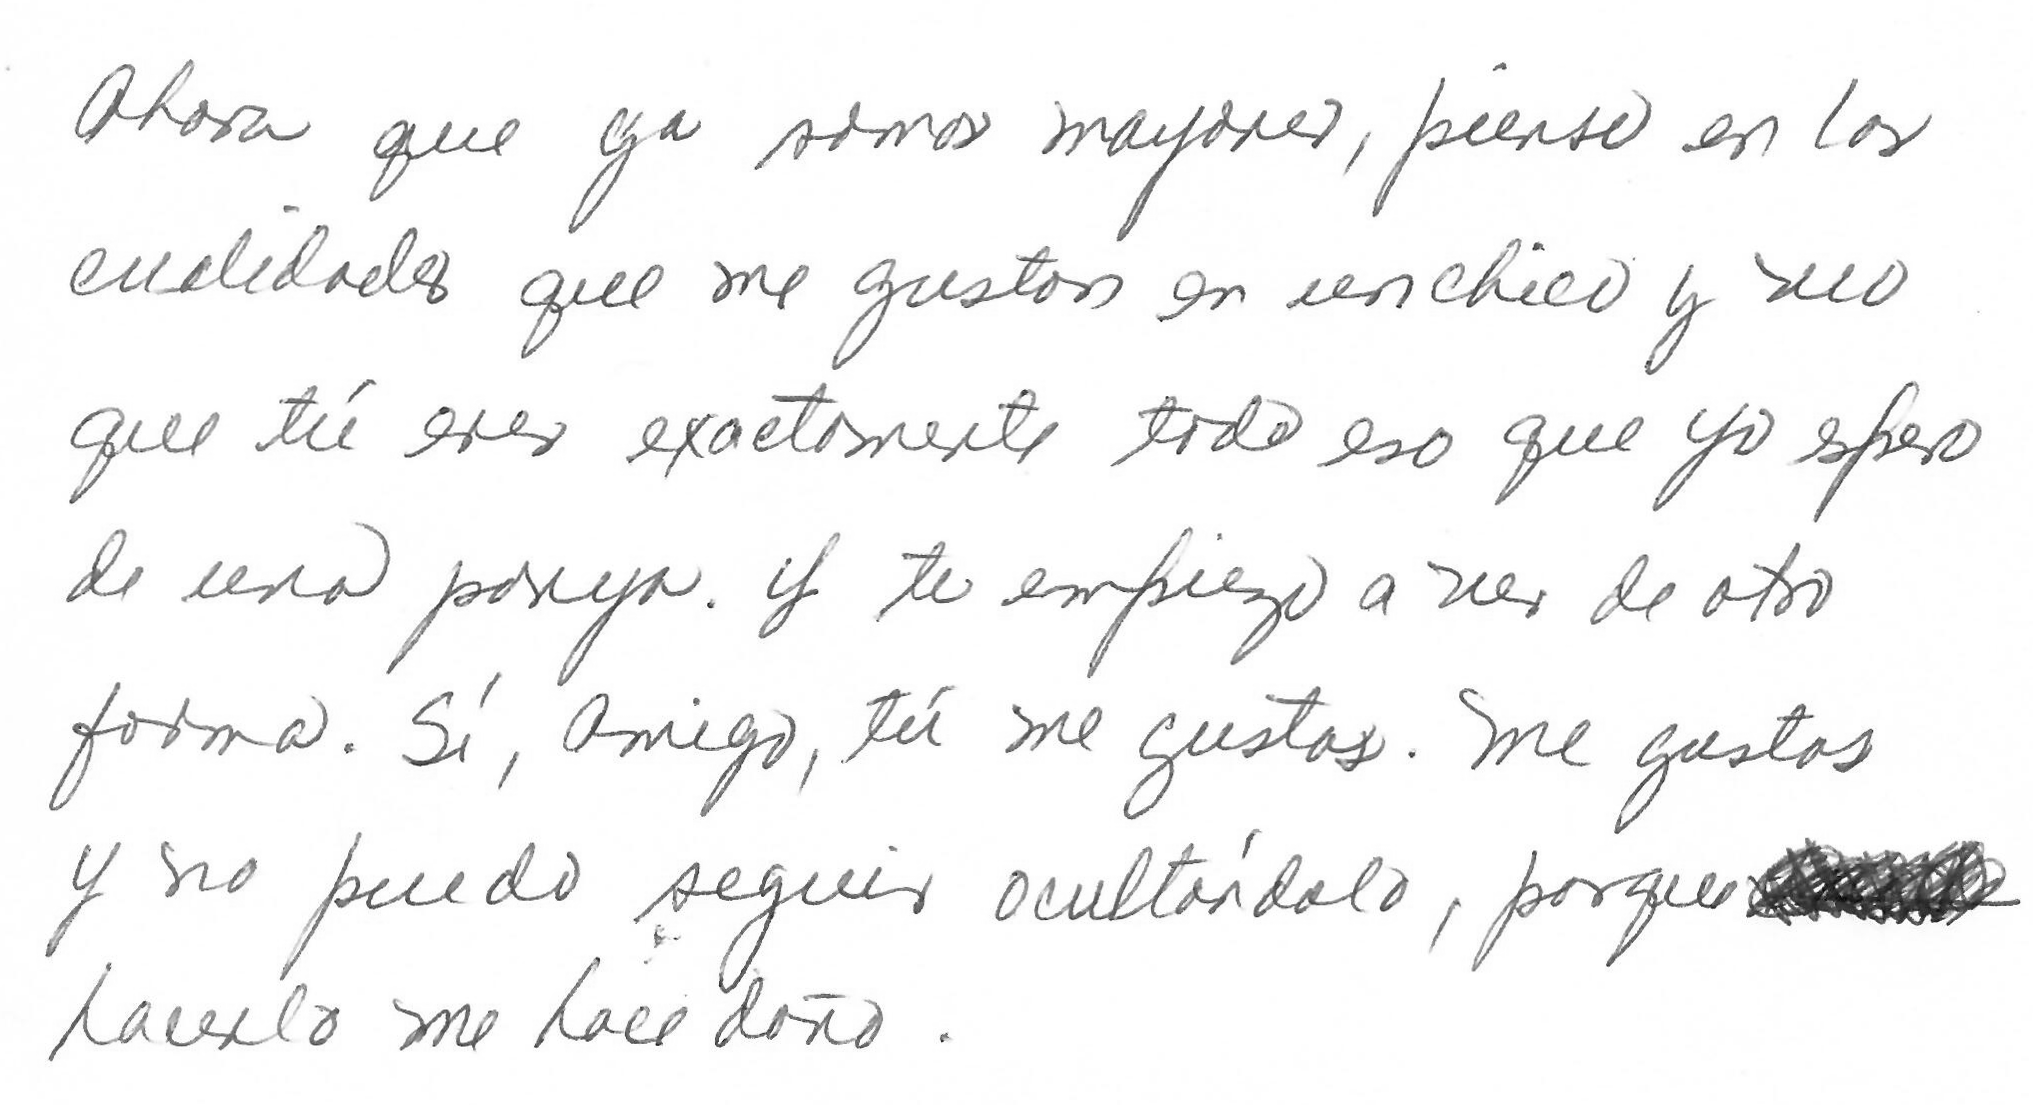 Ahora que ya somos mayores, pienso en las
cualidades que me gustan en un chico y veo
que tú eres exactamente todo eso que yo espero
de una pareja. Y te empiezo a ver de otra
forma. Sí, amigo, tú me gustas. Me gustas
y no puedo seguir ocultándolo, porque
hacerlo me hace daño.